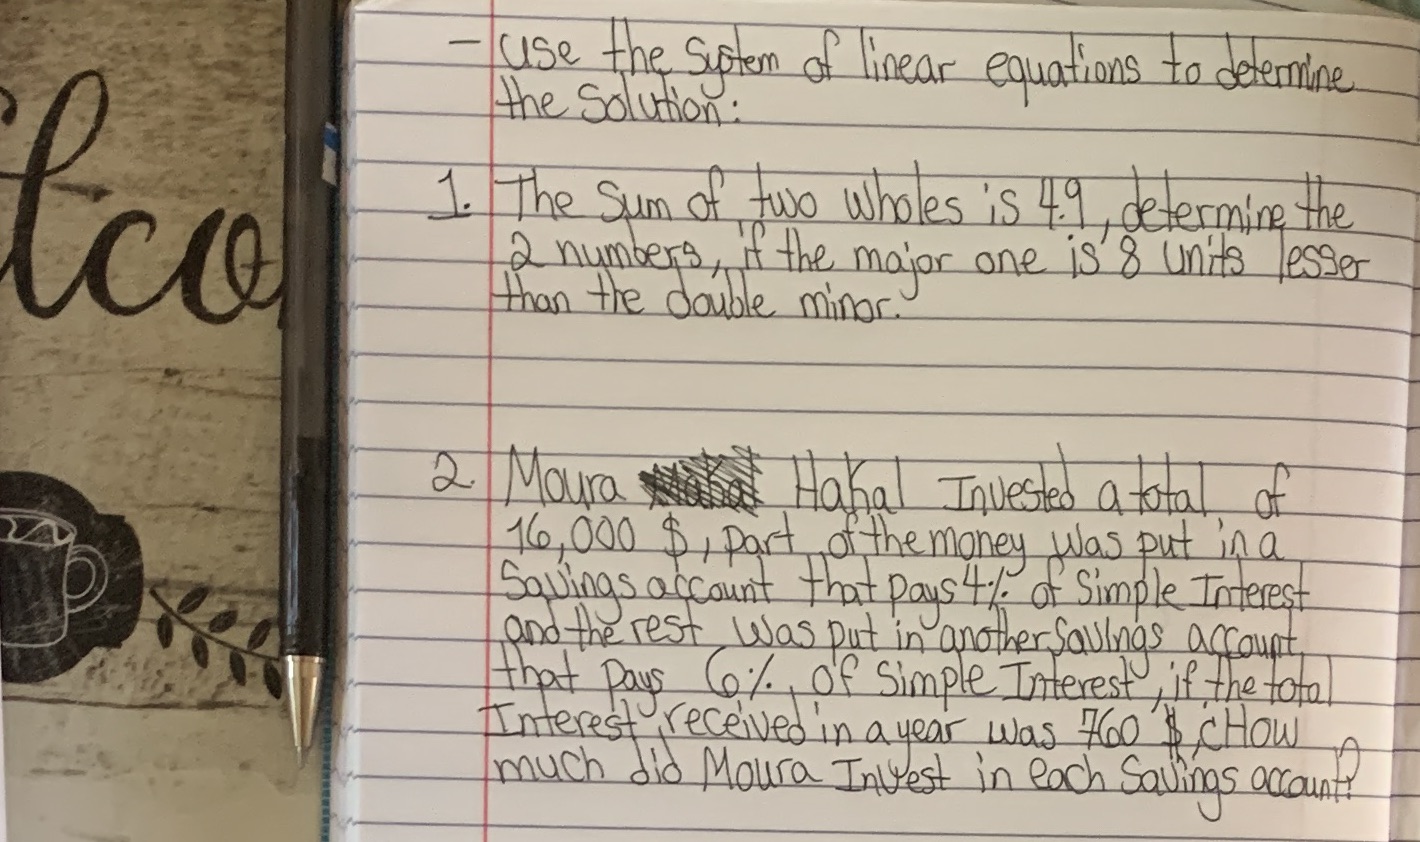 lco
- use the system of linear equations to determine
the solution:
1. The sum of two wholes is 4.9, determine the
2 numbers, if the major one is 8 units lesser
than the double minor.
2. Moura Hakal Invested a total of
16,000 $, part of the money was put in a
Savings account that pays 4% of Simple Interest
and the rest was put in another savings account
that pays 6%, of Simple Interest, if the total
Interest received in a year was 760 $, ¿How
much did Moura Invest in each Savings account?